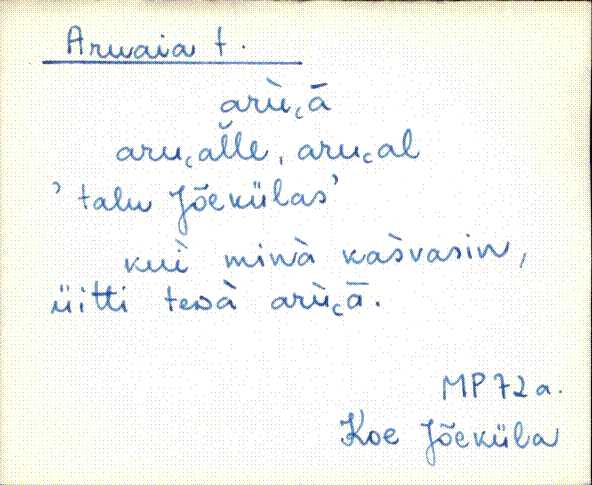 Aruaia t.
arùc̜ā
aruc̜al̆le, aruc̜al
'talu Jõekülas'
kuì minà kaševasin,
üitti tesà arùc̜ā.
MP72a.
Koe Jõeküla